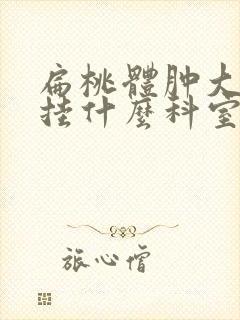 扁桃體肿大
挂什麼科室
旅心僧